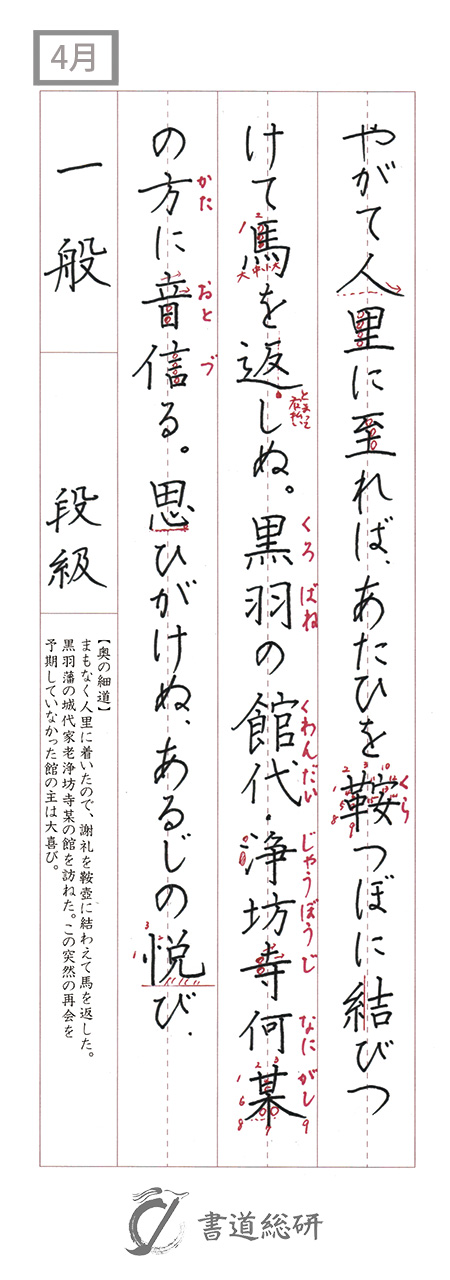 4月
やがて人里に至れば、あたひを鞍つぼに結びつ
くら
けて馬を返しぬ。黒羽の館代・浄坊寺何某
大中小大
とまって右払も
くろばね
くわんだい
じゃうぼうじ
なにがし
の方に音信る。思ひがけぬ、あるじの悦び、
かた
おとづ
一般 段級
【奥の細道】
まもなく人里に着いたので、謝礼を鞍壺に結わえて馬を返した。
黒羽藩の城代家老浄坊寺某の館を訪ねた。この突然の再会を
予期していなかった館の主は大喜び。
書道総研